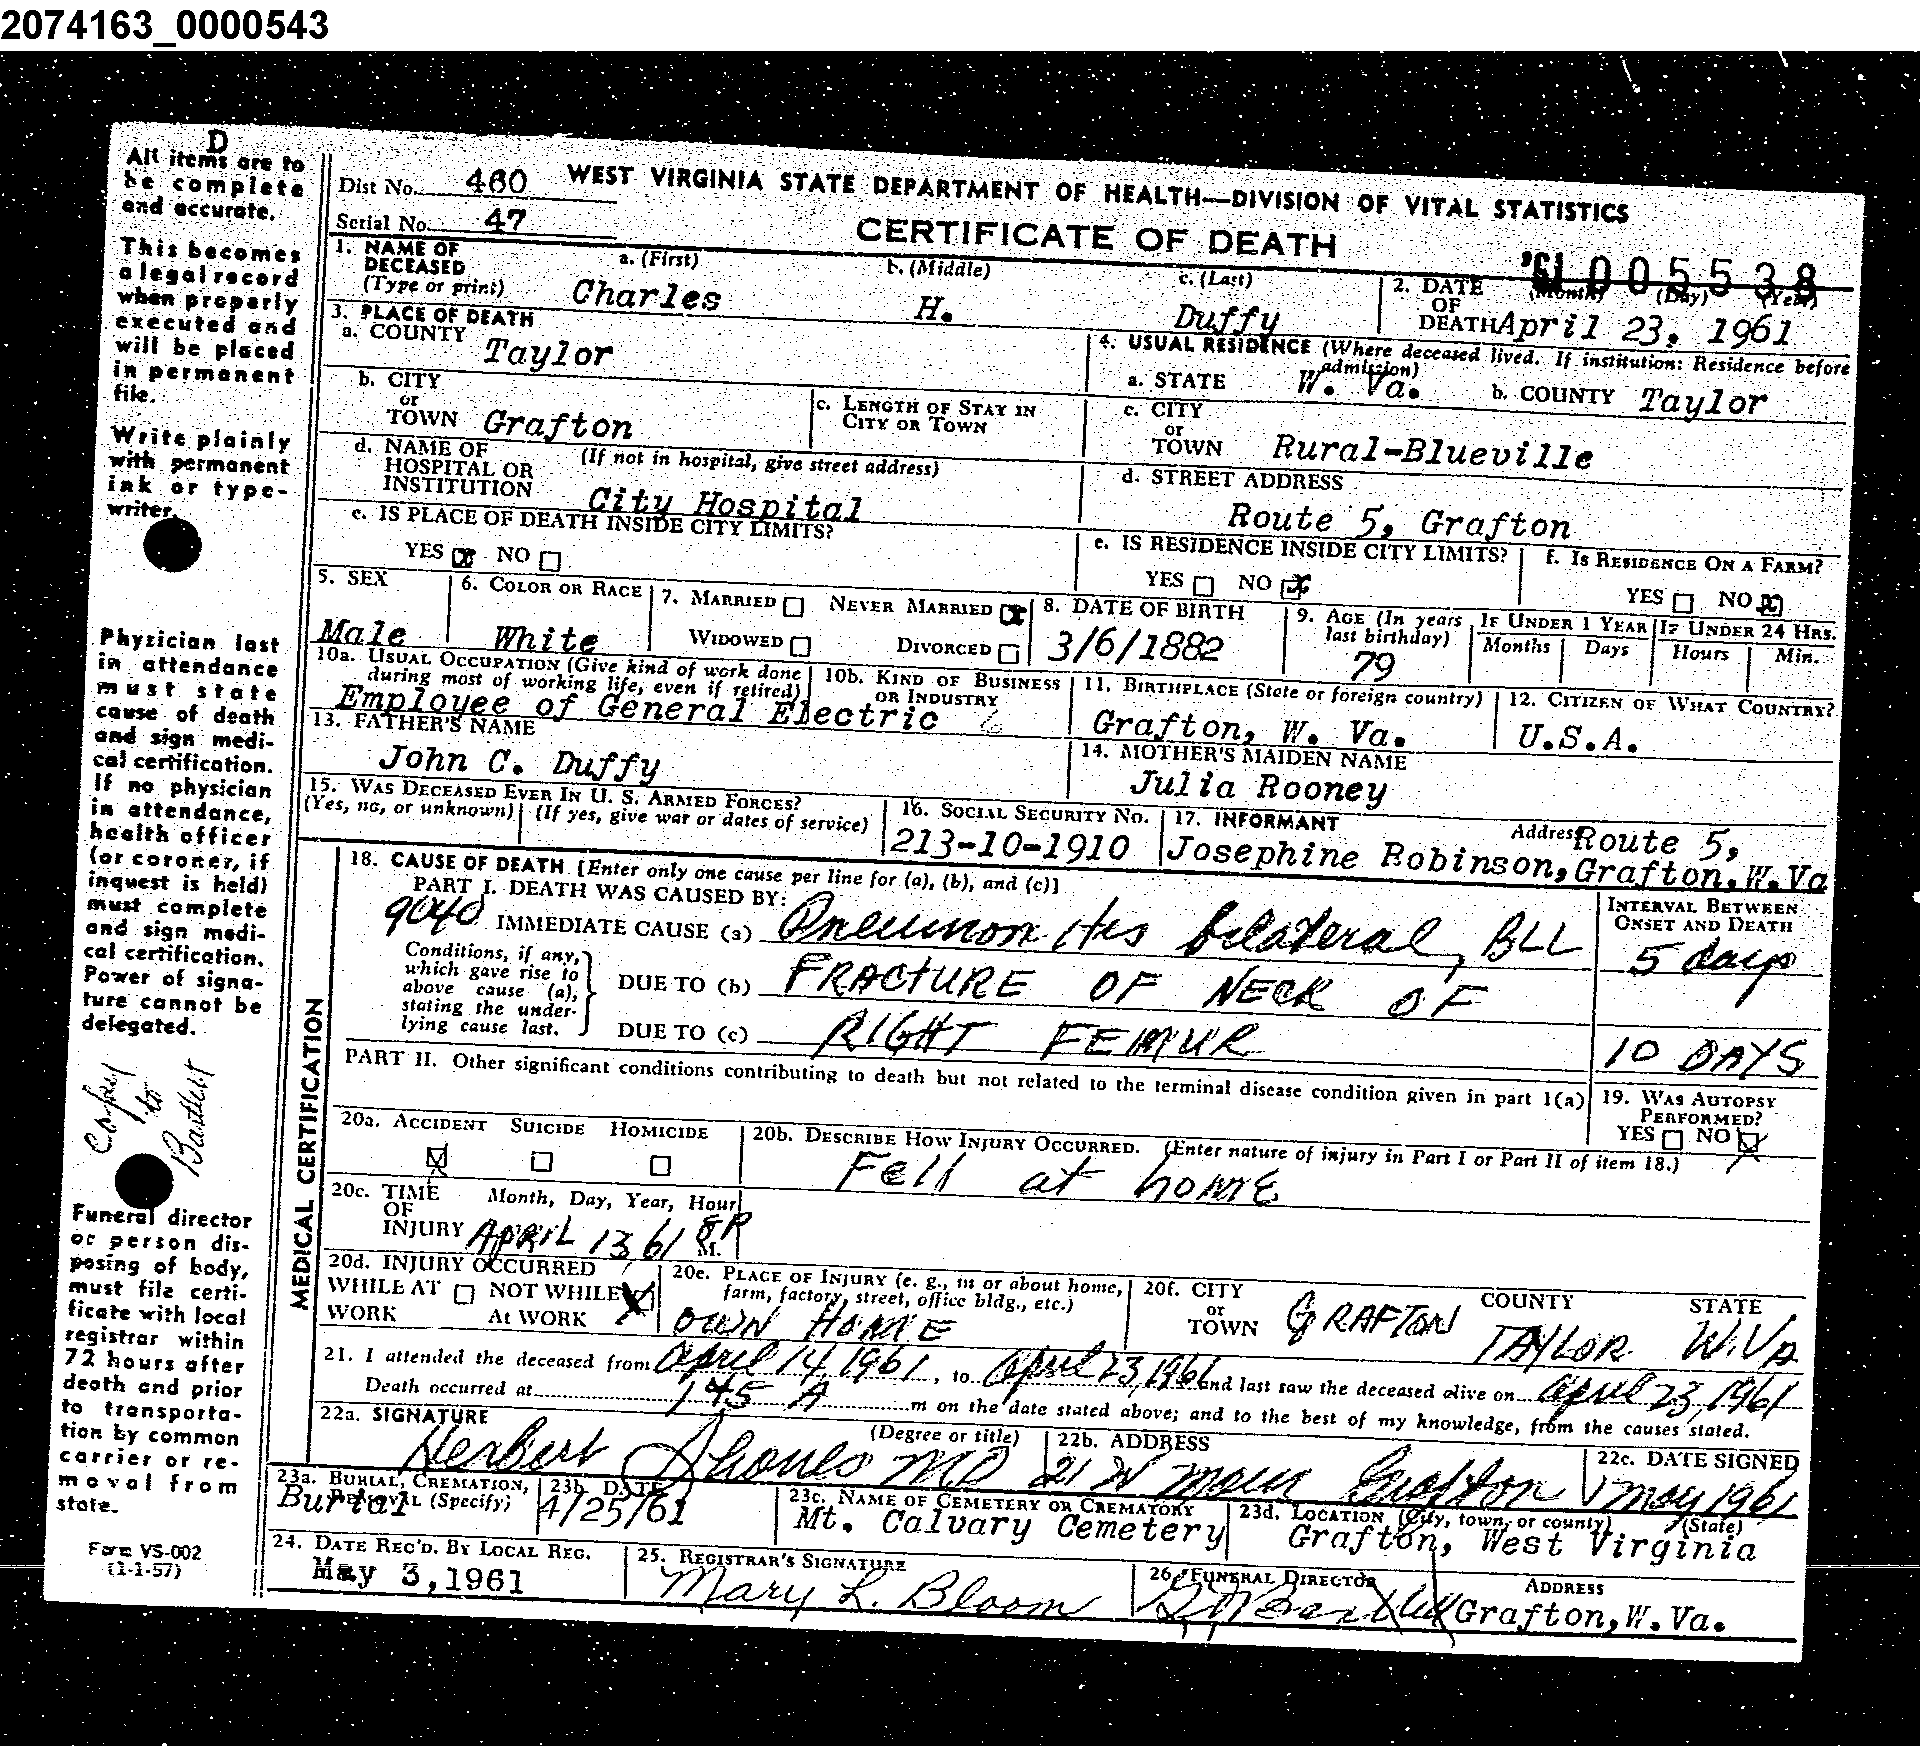 2074163_0000543
D
All items are to
be complete
and accurate.
This becomes
a legal record
when properly
executed and
will be placed
in permanent
file.
Write plainly
with permanent
ink or type-
writer.
Physician last
in attendance
must state
cause of death
and sign medi-
cal certification.
If no physician
in attendance,
health officer
(or coroner, if
inquest is held)
must complete
and sign medi-
cal certification.
Power of signa-
ture cannot be
delegated.
Copy
to
Bartlett
Funeral director
or person dis-
posing of body,
must file certi-
ficate with local
registrar within
72 hours after
death and prior
to transporta-
tion by common
carrier or re-
moval from
state.
Form VS-002
(1-1-57)
Dist No. 460
WEST VIRGINIA STATE DEPARTMENT OF HEALTH—DIVISION OF VITAL STATISTICS
Serial No. 47
CERTIFICATE OF DEATH
'61 005538
1. NAME OF DECEASED (Type or print) a. (First) Charles b. (Middle) H. c. (Last) Duffy
2. DATE OF DEATH (Month) (Day) (Year) April 23, 1961
3. PLACE OF DEATH
a. COUNTY Taylor
4. USUAL RESIDENCE (Where deceased lived. If institution: Residence before admission)
a. STATE W. Va. b. COUNTY Taylor
b. CITY or TOWN Grafton
c. LENGTH OF STAY IN CITY OR TOWN
c. CITY or TOWN Rural-Blueville
d. NAME OF HOSPITAL OR INSTITUTION (If not in hospital, give street address) City Hospital
d. STREET ADDRESS Route 5, Grafton
e. IS PLACE OF DEATH INSIDE CITY LIMITS?
YES x NO
e. IS RESIDENCE INSIDE CITY LIMITS?
YES NO x
f. IS RESIDENCE ON A FARM?
YES NO x
5. SEX Male
6. COLOR OR RACE White
7. MARRIED NEVER MARRIED x
WIDOWED DIVORCED
8. DATE OF BIRTH 3/6/1882
9. AGE (In years last birthday) 79
IF UNDER 1 YEAR Months Days
IF UNDER 24 HRS. Hours Min.
10a. USUAL OCCUPATION (Give kind of work done during most of working life, even if retired) Employee of General Electric
10b. KIND OF BUSINESS OR INDUSTRY
11. BIRTHPLACE (State or foreign country) Grafton, W. Va.
12. CITIZEN OF WHAT COUNTRY? U.S.A.
13. FATHER'S NAME John C. Duffy
14. MOTHER'S MAIDEN NAME Julia Rooney
15. WAS DECEASED EVER IN U. S. ARMED FORCES?
(Yes, no, or unknown) (If yes, give war or dates of service)
16. SOCIAL SECURITY NO. 213-10-1910
17. INFORMANT Address Route 5,
Josephine Robinson, Grafton, W. Va
MEDICAL CERTIFICATION
18. CAUSE OF DEATH [Enter only one cause per line for (a), (b), and (c)]
PART I. DEATH WAS CAUSED BY:
9040 IMMEDIATE CAUSE (a) Pneumonitis bilateral, BLL
INTERVAL BETWEEN ONSET AND DEATH
5 days
Conditions, if any, which gave rise to above cause (a), stating the underlying cause last.
DUE TO (b) FRACTURE OF NECK OF
DUE TO (c) RIGHT FEMUR
10 DAYS
PART II. Other significant conditions contributing to death but not related to the terminal disease condition given in part 1(a)
19. WAS AUTOPSY PERFORMED?
YES NO x
20a. ACCIDENT x SUICIDE HOMICIDE
20b. DESCRIBE HOW INJURY OCCURRED. (Enter nature of injury in Part I or Part II of item 18.)
Fell at home
20c. TIME OF INJURY Month, Day, Year, Hour
APRIL 13 61 8 P M.
20d. INJURY OCCURRED
WHILE AT WORK NOT WHILE AT WORK x
20e. PLACE OF INJURY (e. g., in or about home, farm, factory, street, office bldg., etc.)
OWN HOME
20f. CITY or TOWN GRAFTON COUNTY TAYLOR STATE W.VA
21. I attended the deceased from April 14, 1961, to April 23, 1961 and last saw the deceased alive on April 23, 1961
Death occurred at 1 45 A m on the date stated above; and to the best of my knowledge, from the causes stated.
22a. SIGNATURE (Degree or title) Herbert MD
22b. ADDRESS 21 W Main Grafton
22c. DATE SIGNED 1 May 1961
23a. BURIAL, CREMATION, REMOVAL (Specify) Burial
23b. DATE 4/25/61
23c. NAME OF CEMETERY OR CREMATORY Mt. Calvary Cemetery
23d. LOCATION (City, town, or county) (State) Grafton, West Virginia
24. DATE REC'D. BY LOCAL REG. May 3, 1961
25. REGISTRAR'S SIGNATURE Mary L. Bloom
26. FUNERAL DIRECTOR ADDRESS Grafton, W. Va.